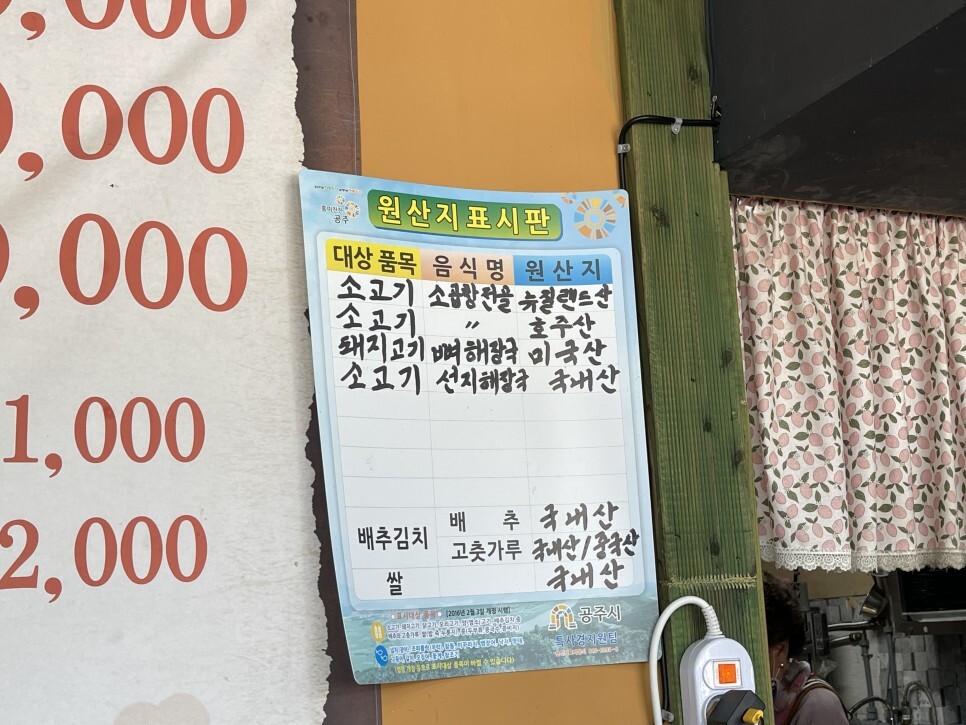 ,000
,000
,000
1,000
2,000
흥미진진
공주
원산지표시판
대상 품목 음식명 원산지
소고기 소곱창전골 뉴질랜드산
소고기 〃 호주산
돼지고기 뼈해장국 미국산
소고기 선지해장국 국내산
배추김치 배추 국내산
고춧가루 국내산/중국산
쌀 국내산
표시대상 품목 [2016년 2월 3일 개정 시행]
공주시
특사경지원팀